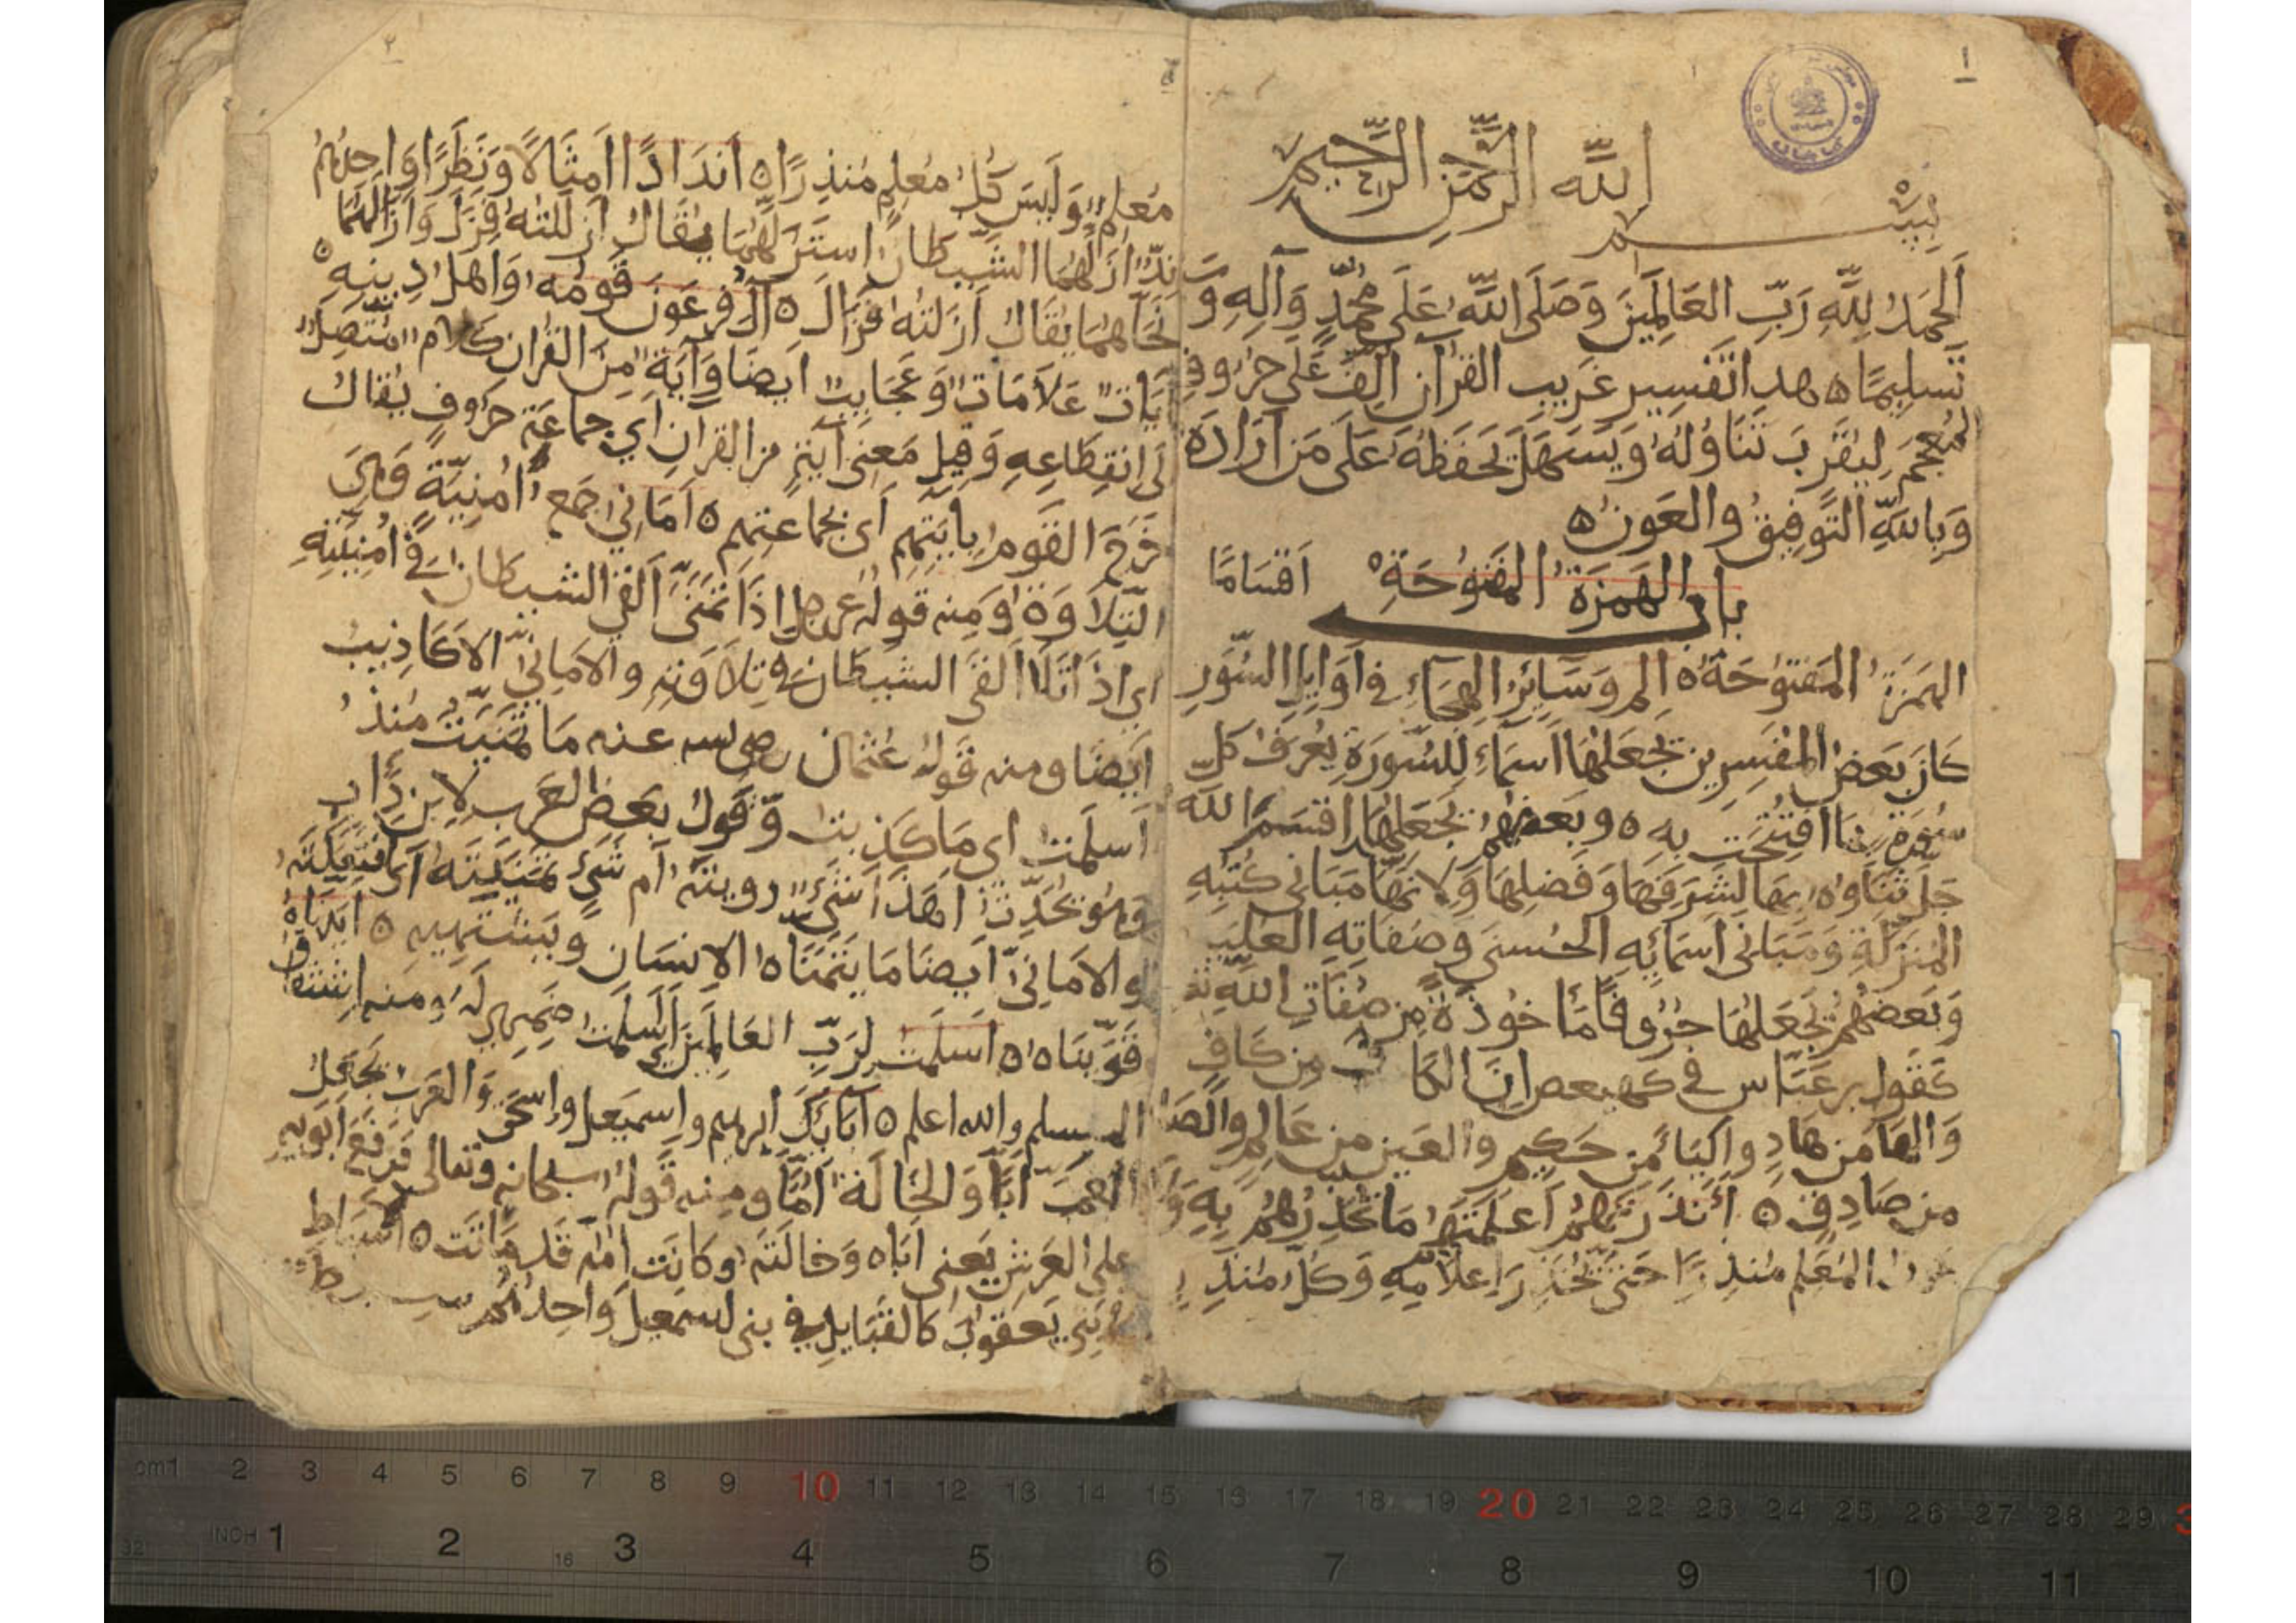 ١
بِسْمِ اللّه الرَّحْمَنِ الرَّحِيمِ
اَلْحَمْدُ لِلَّهِ رَبِّ العَالَمِينَ وَصَلَى اللَّهُ عَلَى مُحَمَّدٍ وَآلِهِ وَسَ
تَسْلِيمًا ه هذا تَفْسِير غَرِيبِ القُرْآنِ اُلِّفَ عَلَى حُرُوفِ
المُعْجَمِ لِيَقْرُبَ تَنَاوُلُهُ وَيَسْهَلَ حِفْظُهُ عَلَى مَنْ اَرَادَهُ
وَبِاللَّهِ التَّوفِيقُ والعَونُ ه
باب الهَمْزَة المَفْتُوحَةِ
اَقْسَامًا
الهَمْزَةُ المَفْتُوحَةُ ه الم وَسَائِرُ الهِجَاءِ فى اَوَايِلِ السُّوَرِ
كَانَ بَعْضُ المُفَسِرِين يَجْعَلُهَا اَسْمَاءً لِلسُّورَةِ يُعْرَفُ كُلّ
سُورَةٍ بِمَا افْتُتِحَت بِهِ ه وبَعضُهُم يَجْعَلُهَا اقْسَمَ اللَّه
جَلَ ثَنَاوهُ بِهَا لِشَرَفِهَا وَفَضْلِهَا وَلِاَنَّهَا مَبَانِى كُتُبِهِ
المُنَزَلَةِ وَمَبَانِى اَسْمَائِهِ الحُسْنَى وَصِفَاتِهِ العُلْيَا
وَبَعْضُهُم يَجْعَلُهَا حُرُوفًا مَأخُوذَةً مِن صِفَاتِ اللَّهِ
كَقَولِ بن عَبَّاس فى كهيعص اِنَّ الكَافَ مِن كَافٍ
وَالهَا مَن هَادٍ وَاليَاء مَن حَكِيمٍ والعَين مِن عَالِمٍ وَالصَا
مِن صَادِقٍ ه أَنْذَرْتَهُم اَعْلَمْتَهُم مَا تُحَذِرُهُم بِهِ وَلَا
المُعْلِم مُنْذِرًا حَتى يُحَذِرَ بِاِعْلَامِهِ وَكُلّ مُنْذِرٍ
٢
مُعْلِم وَلَيسَ كُلُّ مُعْلِمٍ مُنذِرًا ه اَندَادًا اَمْثَالًا وَنُظَرًا وَاحِدُهُم
نِدّ اَزَلَّهُمَا الشَّيطَانُ اسْتَزَلَهُمَا يُقَالُ اَزْلَلْتُهُ فَزَلَّ وَاَزَالَهُمَا
نَحَّاهُمَا يُقَالُ اَزَلْتُهُ فَزَالَ ه آلَ فِرعَونَ قَومُهُ وَاَهْلُ دِينِهِ ه
آيَات عَلَامَات وَعَجَايِبُ اَيضًا وَآيَةٌ مِنَ القُرآن كَلَام مُتَّصِل
لَى انْقِطَاعِهِ وَقِيل مَعْنى آيَةٍ مِنَ القُرْآنِ اَي جَماعَة حُرُوفٍ يُقَالُ
خَرَجَ القَومُ بِآيَتِهِم اَى بِجَمَاعَتِهِم ه اَمَانِيَ جَمعُ اُمْنِيَّةٍ وَهِيَ
التِّلَاوَةُ وَمِنه قَولُهُ عز وجل اِذَا تَمَنَّى اَلْقَى الشَّيطَانُ فى اُمْنِيَتِهِ
اى اِذَا تَلَا اَلْقَى الشَيطَان فى تِلَاوَتِهِ والاَمَانِيُّ الاَكَاذِيبُ
اَيضًا ومنه قَولُ عُثْمَان رضى الله عنه مَا تَمَنَّيتُ مُنذُ
اَسْلَمْتُ اى مَا كَذَبْتُ وَقَولُ بَعْضِ العَرَب لِابنِ دَاب
وَهُوَ يُحَدِّثُ اَهَذَا شَىْءٌ رُوِيتَهُ اَم شَىْءٌ تَمَنَّيتَهُ اَى افْتَعَلْتَهُ
والاَمَانِيُّ اَيضًا مَا يَتَمَنَّاهُ الاِنسَان وَيَشْتَهِيهِ ه اَيَّدنَاهُ
قَوَّينَاهُ ه اَسْلَمْتُ لِرَبِّ العَالَمِينَ اَي سَلِمَتْ ضَمِيرِى لَهُ ومنه اشتقاق
المسلم والله اعلم ه آبَائِكَ ابرهيم واسمَعِيلَ واسْحَق وَالعَرَبُ تَجْعَلُ
العَمَّ اَبًا وَالخَالَةَ اُمًّا ومنه قَولُهُ سبحانه وتعالى وَرَفَعَ اَبَوَيهِ
على العَرشِ يَعْنِى اَبَاهُ وَخَالَتَهُ وكَانَت اُمُّهُ قَد مَاتَت ه اَسْبَاطِ
فى بَنِى يَعقُوبَ كَالقَبَايِلِ فى بنى اسمَعِيلَ وَاحِدُهُم سبط